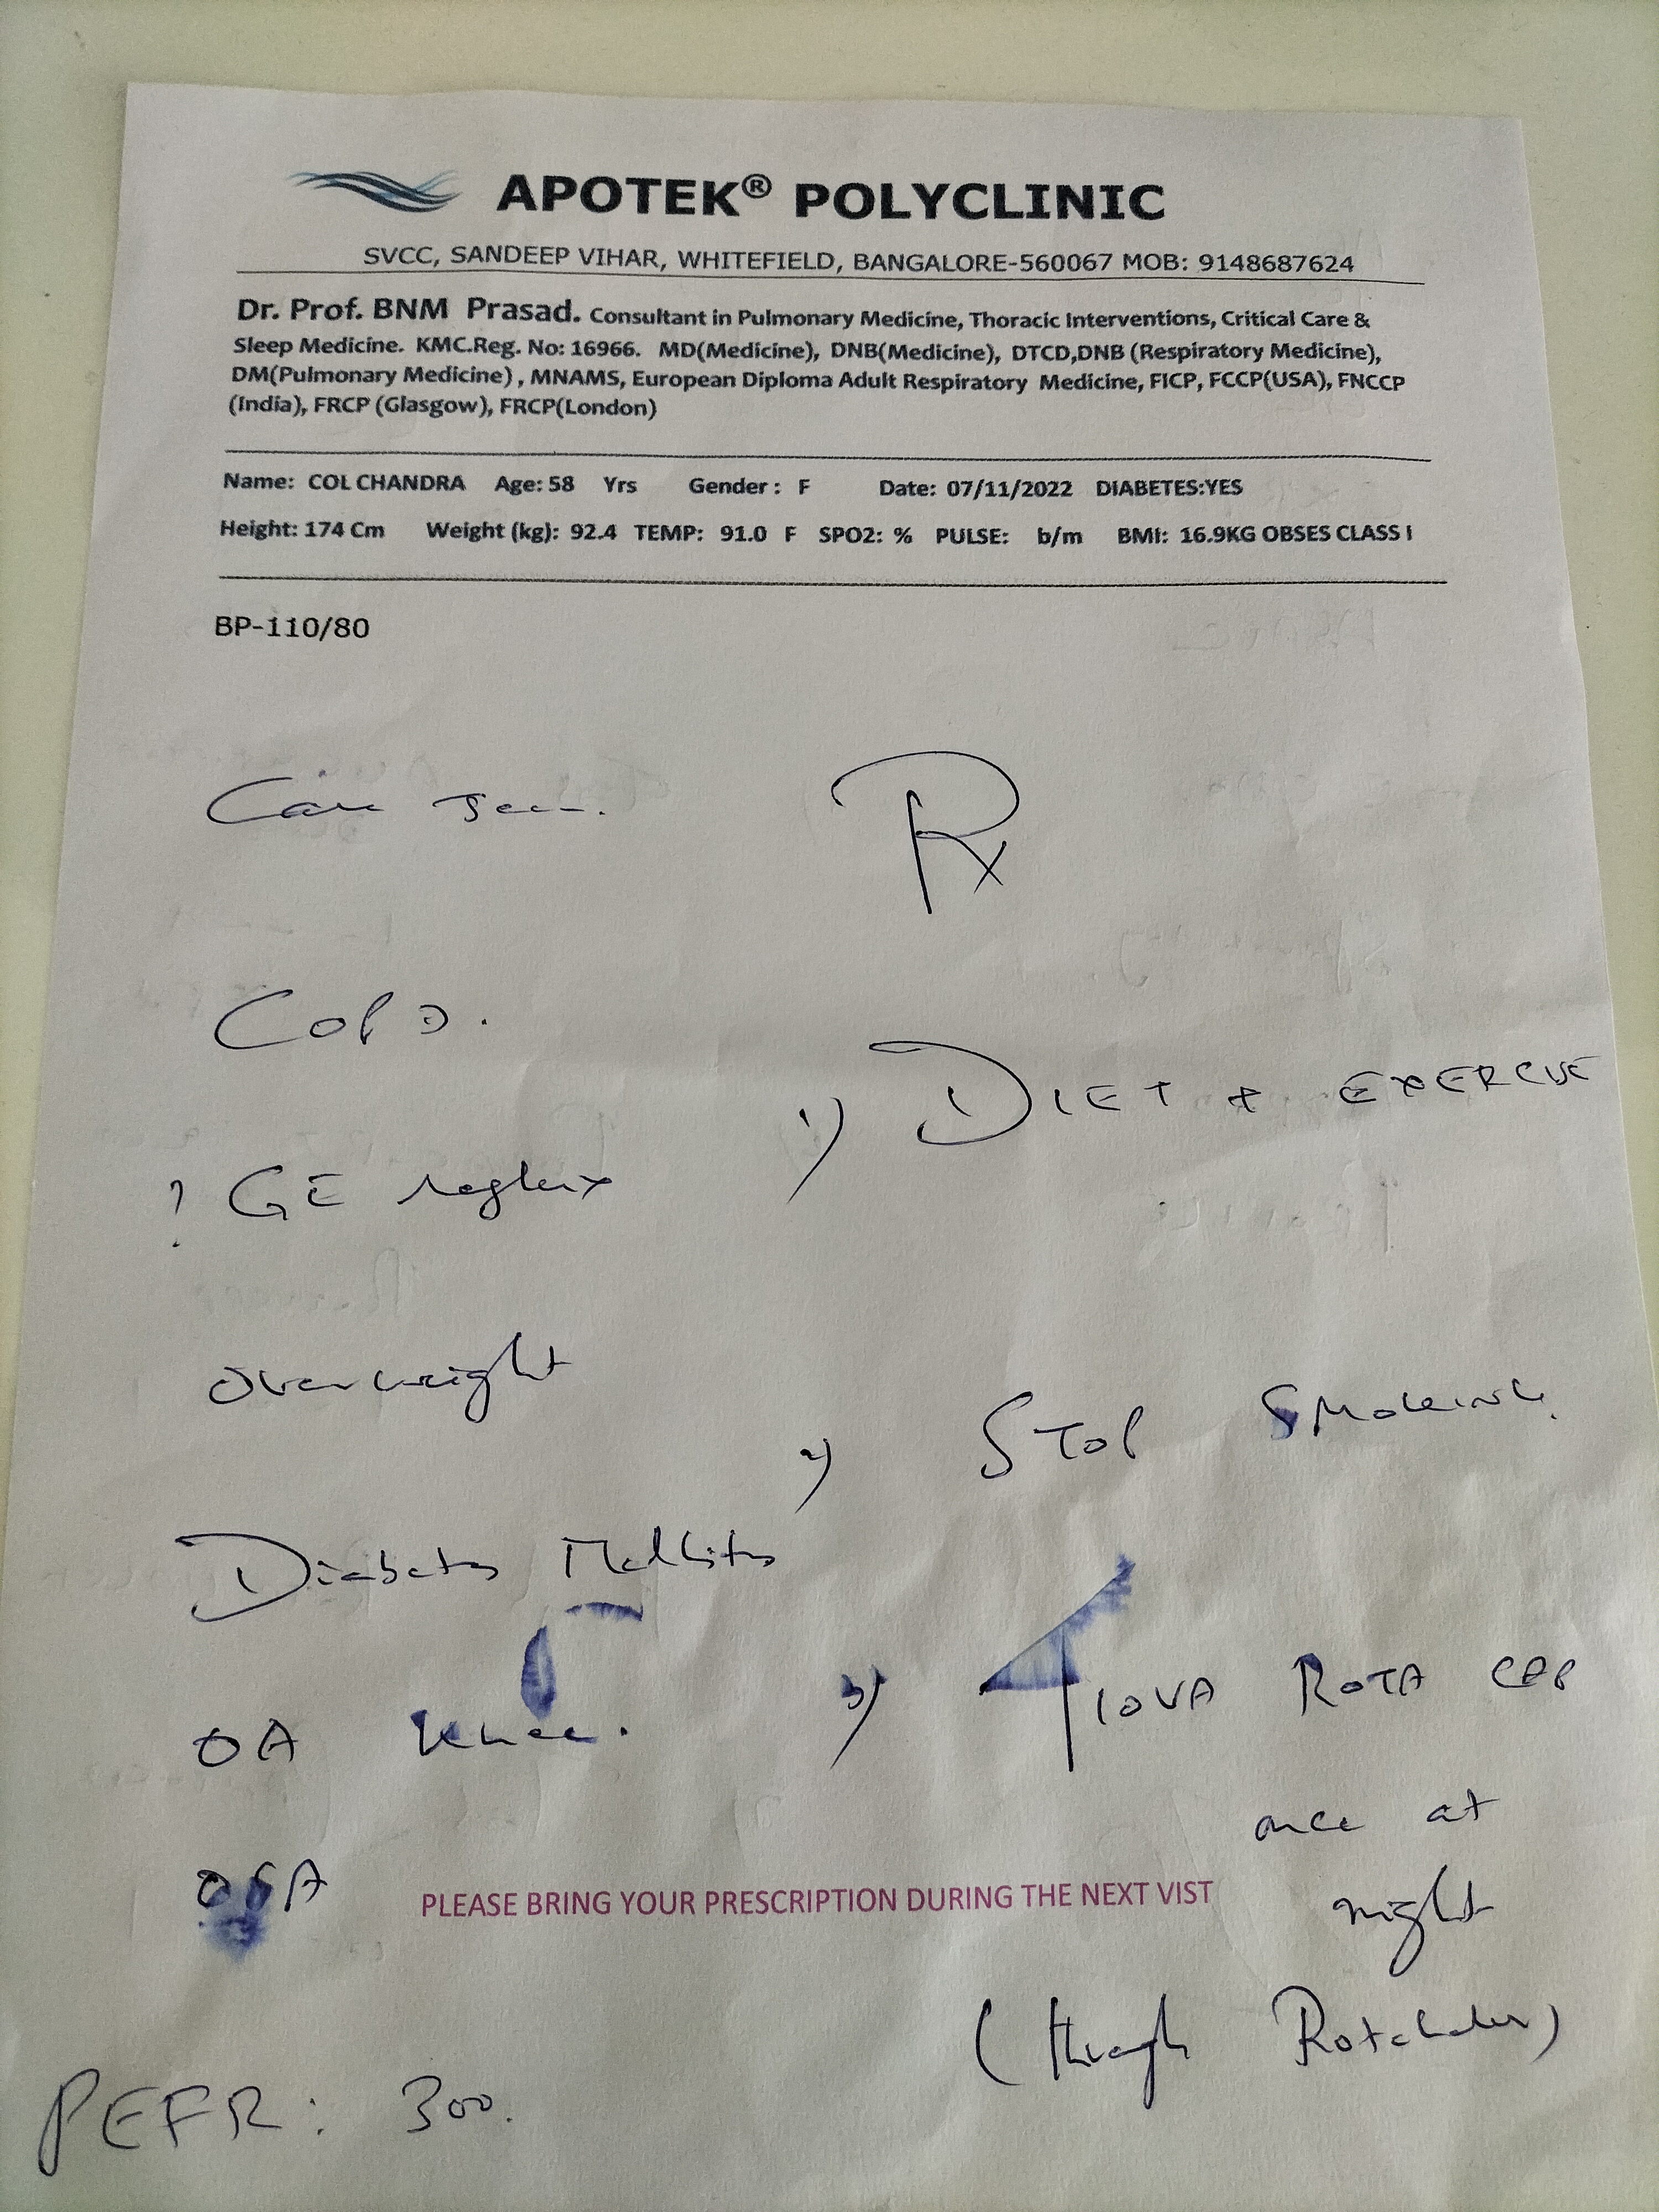 APOTEK® POLYCLINIC
SVCC, SANDEEP VIHAR, WHITEFIELD, BANGALORE-560067 MOB: 9148687624
Dr. Prof. BNM Prasad. Consultant in Pulmonary Medicine, Thoracic Interventions, Critical Care &
Sleep Medicine. KMC.Reg. No: 16966. MD(Medicine), DNB(Medicine), DTCD,DNB (Respiratory Medicine),
DM(Pulmonary Medicine) , MNAMS, European Diploma Adult Respiratory Medicine, FICP, FCCP(USA), FNCCP
(India), FRCP (Glasgow), FRCP(London)
Name: COL CHANDRA Age: 58 Yrs Gender : F Date: 07/11/2022 DIABETES:YES
Height: 174 Cm Weight (kg): 92.4 TEMP: 91.0 F SPO2: % PULSE: b/m BMI: 16.9KG OBSES CLASS I
BP-110/80
Case seen.
Rx
COPD.
? GE reflux
Overweight
Diabetes Mellitus
OA Knee.
OSA
PEFR: 300.
1) DIET + EXERCISE
2) STOP SMOKING.
3) TIOVA ROTA CAP
once at
night
(through Rotahaler)
PLEASE BRING YOUR PRESCRIPTION DURING THE NEXT VIST